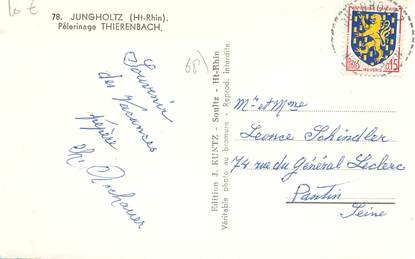 78. JUNGHOLTZ (Ht-Rhin).
Pèlerinage THIERENBACH.
68)
Souvenir
des Vacances
pépère
Ch.
Edition J. KUNTZ - Soultz - Ht-Rhin
Véritable photo au bromure - Reprod. interdite
NEVERS
0,15
Mr et Mme
Leonce Schindler
74 rue du Général Leclerc
Pantin
Seine